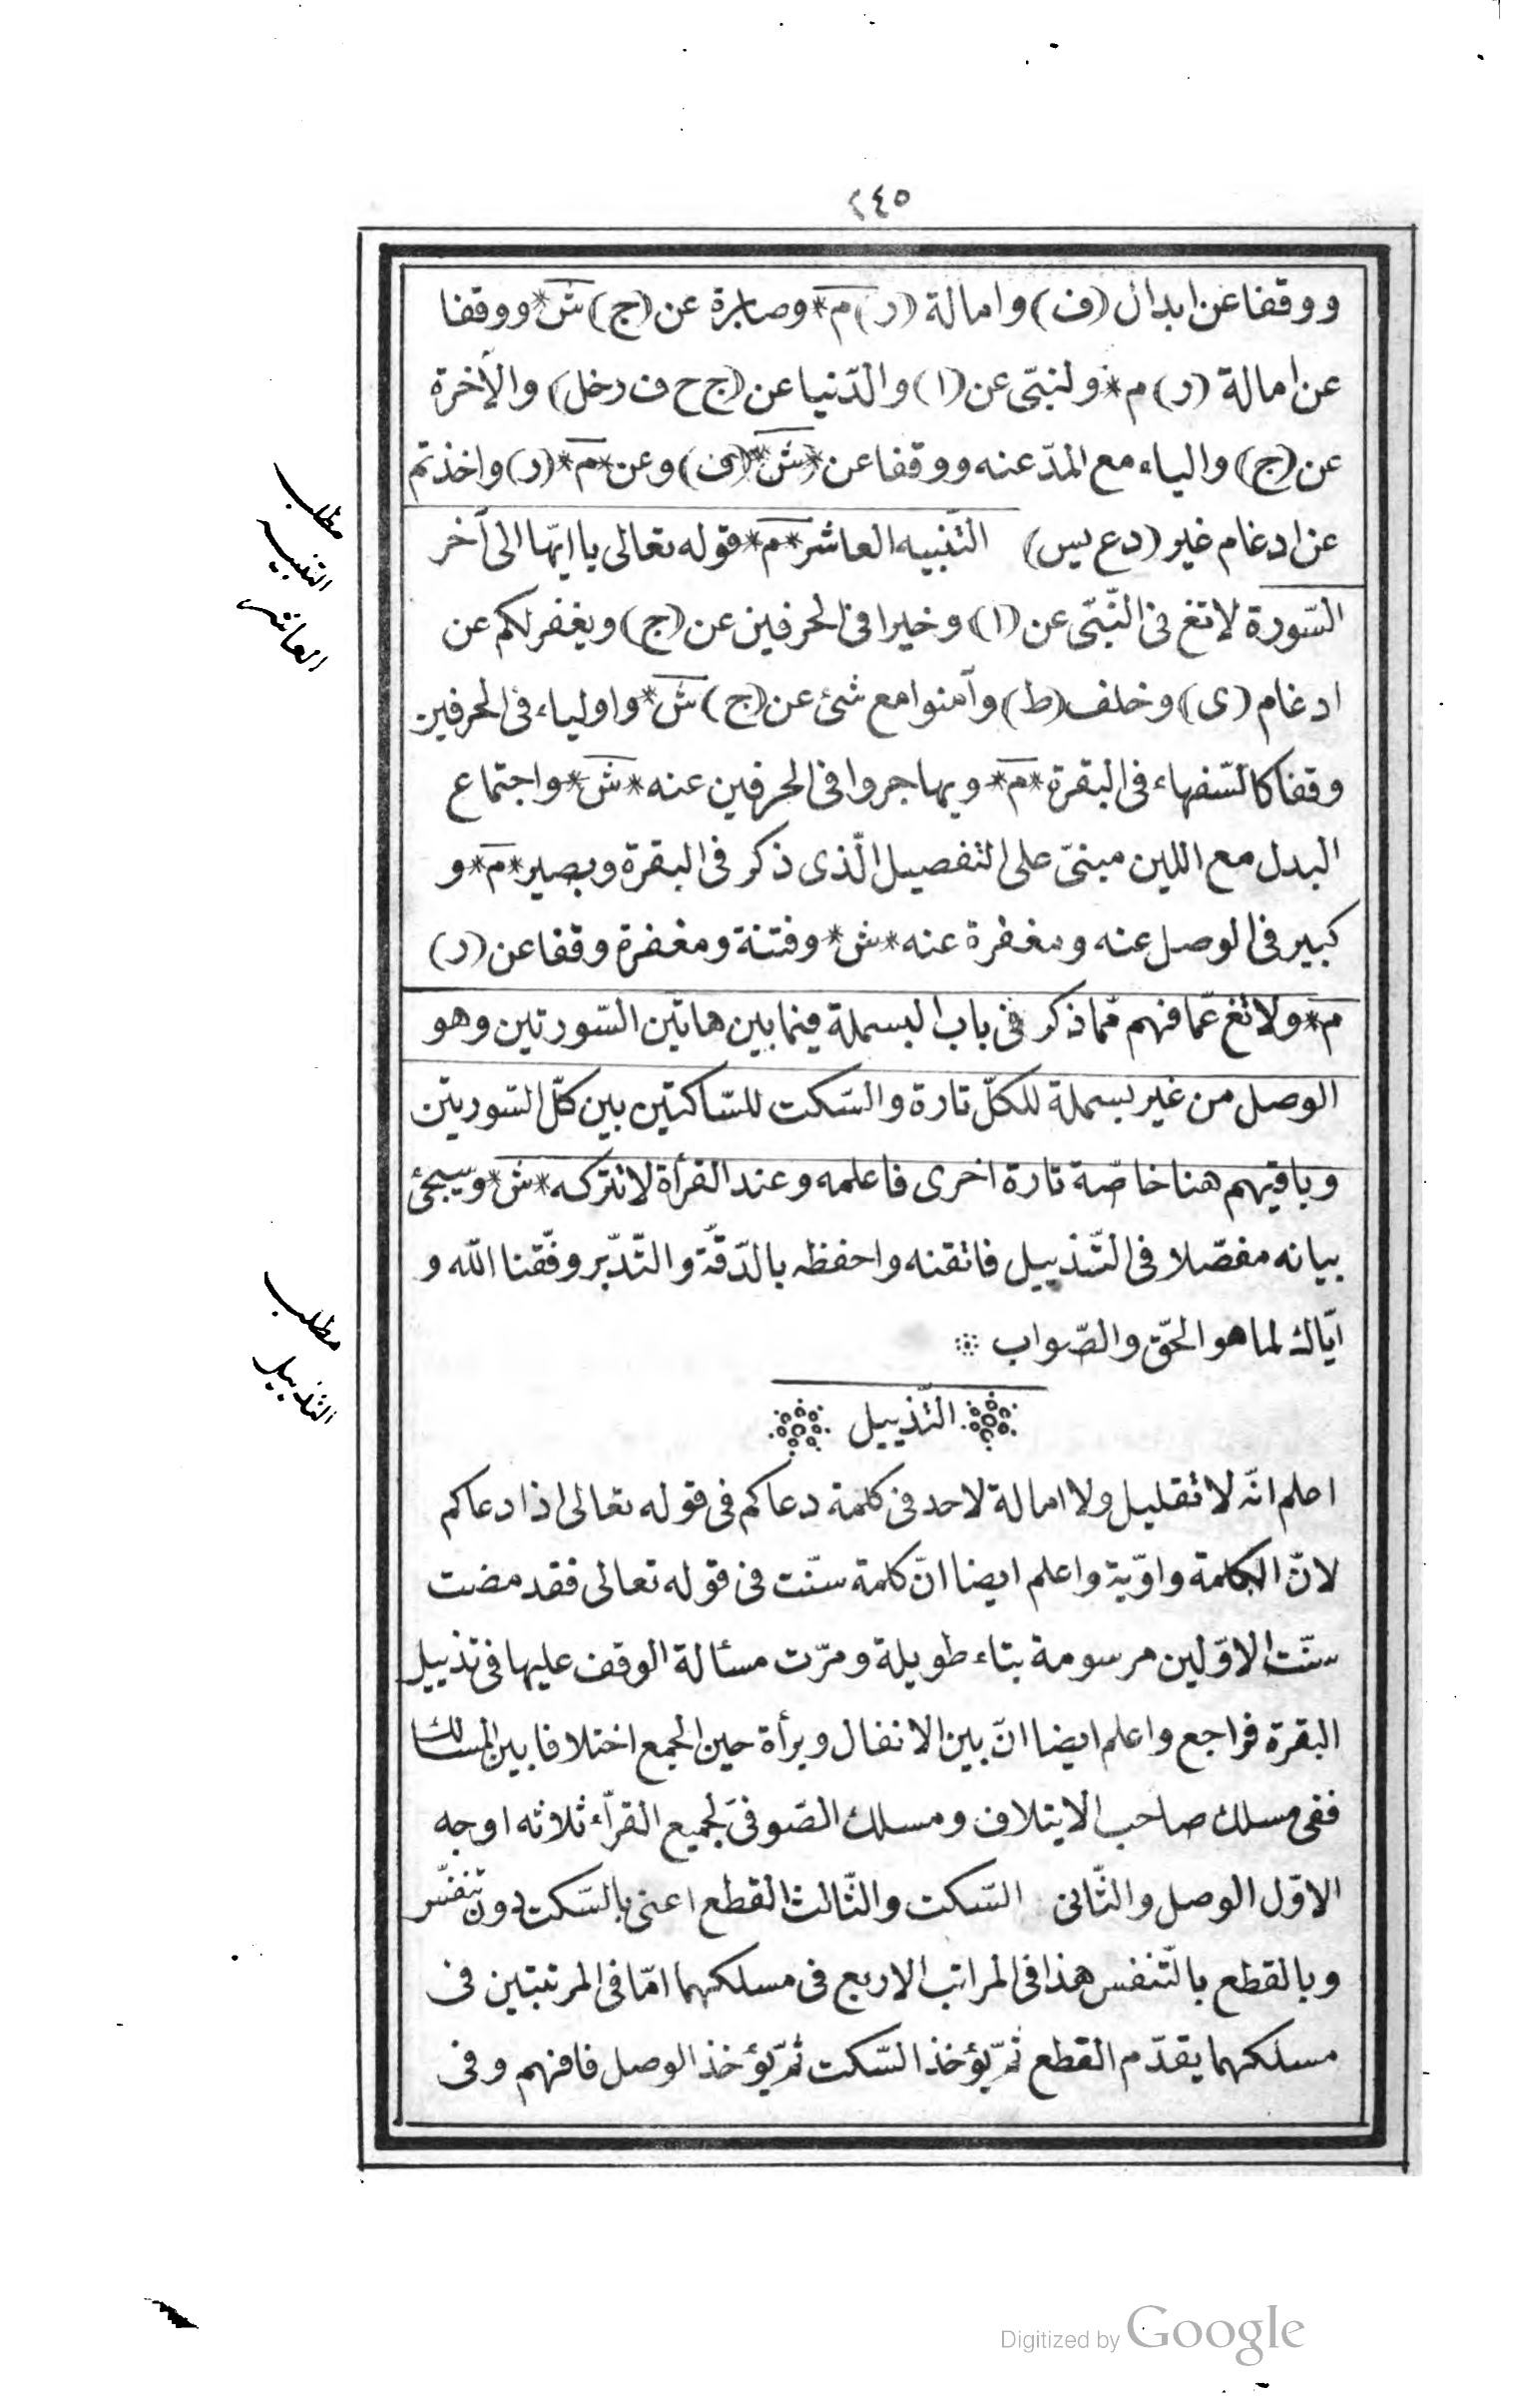 ٢٤٥
ووقفا عن ابدال (ف) وامالة (ر) م* وصابرة عن (ج) ش* ووقفا
عن امالة (ر) م* ولنبىّ عن (ا) والدّنيا عن (ج ح ف رخل) والآخرة
عن (ج) والياء مع المدّ عنه ووقفا عن *ش* (ف) وعن *م* (ر) واخذتم
عن ادغام غير (دع يس) التّنبيه العاشر *م* قوله تعالى يا ايّها الى آخر
السّورة لا تغ فى النّبىّ عن (ا) وخيرا فى الحرفين عن (ج) ويغفر لكم عن
ادغام (ى) وخلف (ط) وآمنوا مع شئ عن (ج) ش* واولياء فى الحرفين
وقفا كالسّفهاء فى البقرة *م* ويهاجروا فى الحرفين عنه *ش* واجتماع
البدل مع اللين مبنىّ على التفصيل الّذى ذكر فى البقرة وبصير *م* و
كبير فى الوصل عنه ومغفرة عنه *ش* وفتنة ومغفرة وقفا عن (ر)
م* ولا تغ عمّا فهم ممّا ذكر فى باب البسملة فيما بين هاتين السّورتين وهو
الوصل من غير بسملة للكلّ تارة والسّكت للسّاكتين بين كلّ السّورتين
وباقيهم هنا خاصّة تارة اخرى فاعلمه وعند القرأة لا تتركه *ش* وسيجئ
بيانه مفصّلا فى التّذييل فاتقنه واحفظه بالدّقّة والتّدبّر وفّقنا الله و
ايّاك لما هو الحقّ والصّواب
التّذييل
اعلم انّه لا تقليل ولا امالة لاحد فى كلمة دعاكم فى قوله تعالى اذا دعاكم
لانّ الكلمة واوّية واعلم ايضا انّ كلمة سنّت فى قوله تعالى فقد مضت
سنّت الاوّلين مرسومة بتاء طويلة ومرّت مسئالة الوقف عليها فى تذييل
البقرة فراجع واعلم ايضا انّ بين الانفال وبرأة حين الجمع اختلافا بين المسالك
ففى مسلك صاحب الايتلاف ومسلك الصّوفىّ لجميع القرّاء ثلاثه اوجه
الاوّل الوصل والثّانى السّكت والثّالث القطع اعنى بالسّكت دون تنفّس
وبالقطع بالتّنفس هذا فى المراتب الاربع فى مسلكهما امّا فى المرتبتين فى
مسلكهما يقدّم القطع ثمّ يؤخذ السّكت ثمّ يؤخذ الوصل فافهم وفى
مطلب
التنبيه
العاشر
مطلب
التذييل
Digitized by Google